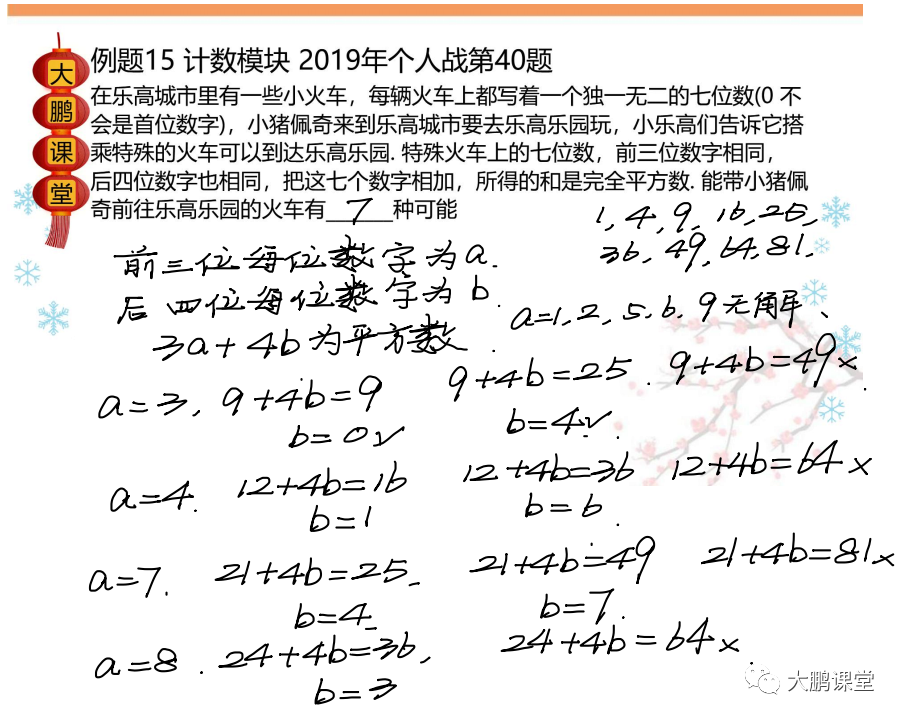 大鹏课堂
例题15 计数模块 2019年个人战第40题
在乐高城市里有一些小火车，每辆火车上都写着一个独一无二的七位数(0 不
会是首位数字)，小猪佩奇来到乐高城市要去乐高乐园玩，小乐高们告诉它搭
乘特殊的火车可以到达乐高乐园. 特殊火车上的七位数，前三位数字相同，
后四位数字也相同，把这七个数字相加，所得的和是完全平方数. 能带小猪佩
奇前往乐高乐园的火车有 7 种可能
1, 4, 9, 16, 25,
36, 49, 64, 81.
前三位每位数字为a.
后四位每位数字为b.
a=1, 2, 5, 6, 9无解、
3a+4b为平方数.
a=3, 9+4b=9 9+4b=25. 9+4b=49×.
b=0√ b=4√.
a=4. 12+4b=16 12+4b=36 12+4b=64×
b=1 b=6.
a=7. 21+4b=25. 21+4b=49 21+4b=81×
b=4 b=7.
a=8. 24+4b=36, 24+4b=64×.
b=3
大鹏课堂